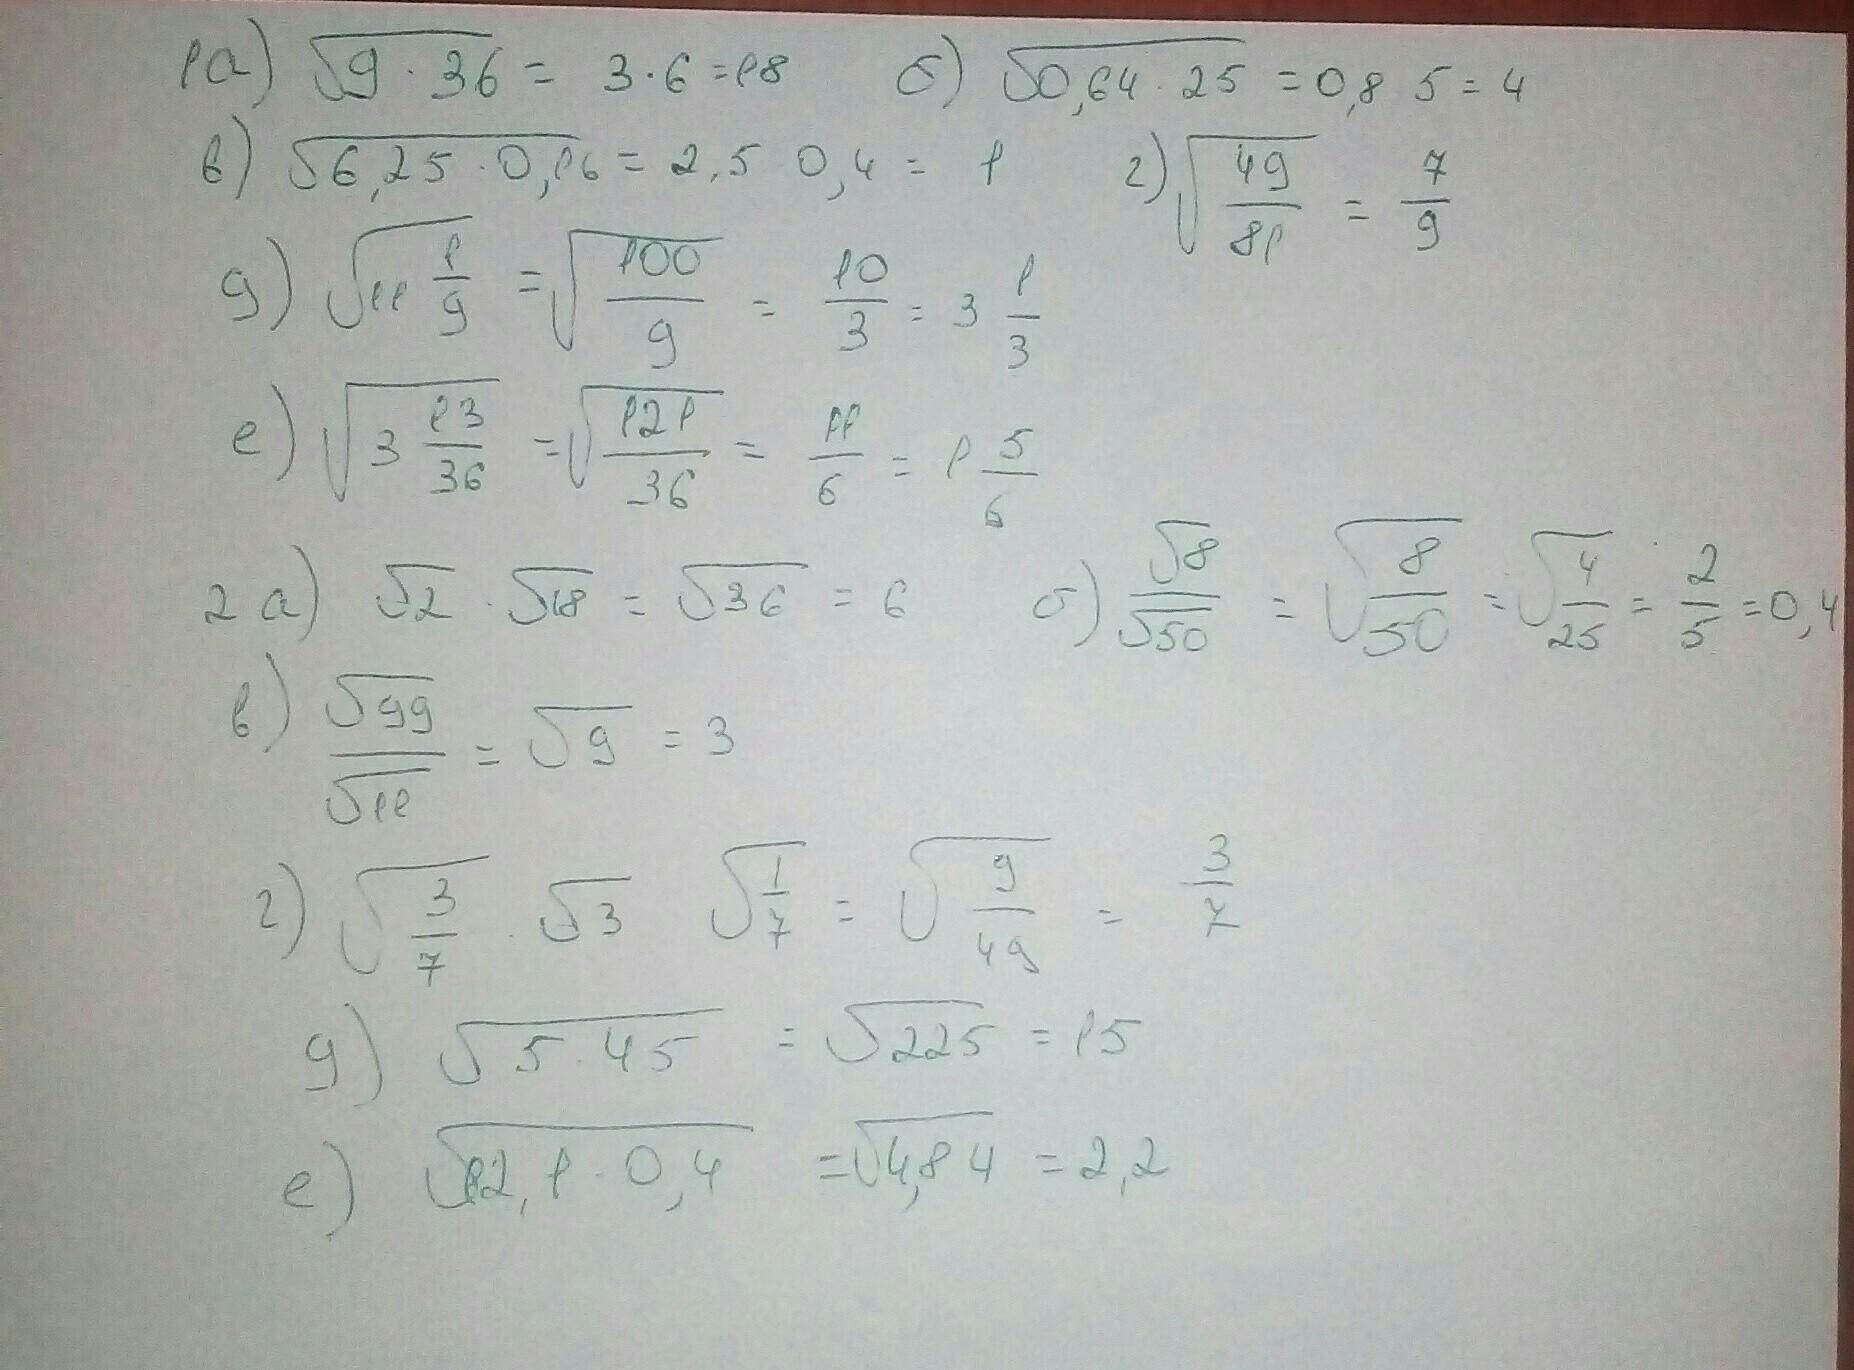 1а) √9·36 = 3·6 = 18 б) √0,64·25 = 0,8 5 = 4
в) √6,25·0,16 = 2,5 0,4 = 1 г) √49/81 = 7/9
д) √11 1/9 = √100/9 = 10/3 = 3 1/3
е) √3 13/36 = √121/36 = 11/6 = 1 5/6
2 а) √2 · √18 = √36 = 6 б) √8/√50 = √8/50 = √4/25 = 2/5 = 0,4
в) √99/√11 = √9 = 3
г) √3/7 · √3 √1/7 = √9/49 = 3/7
д) √5·45 = √225 = 15
е) √12,1·0,4 = √4,84 = 2,2